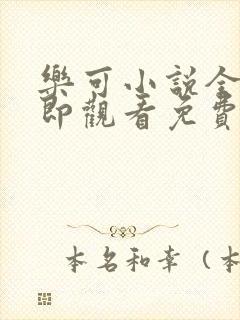 樂可小說全
即觀看免費
本名和幸（本